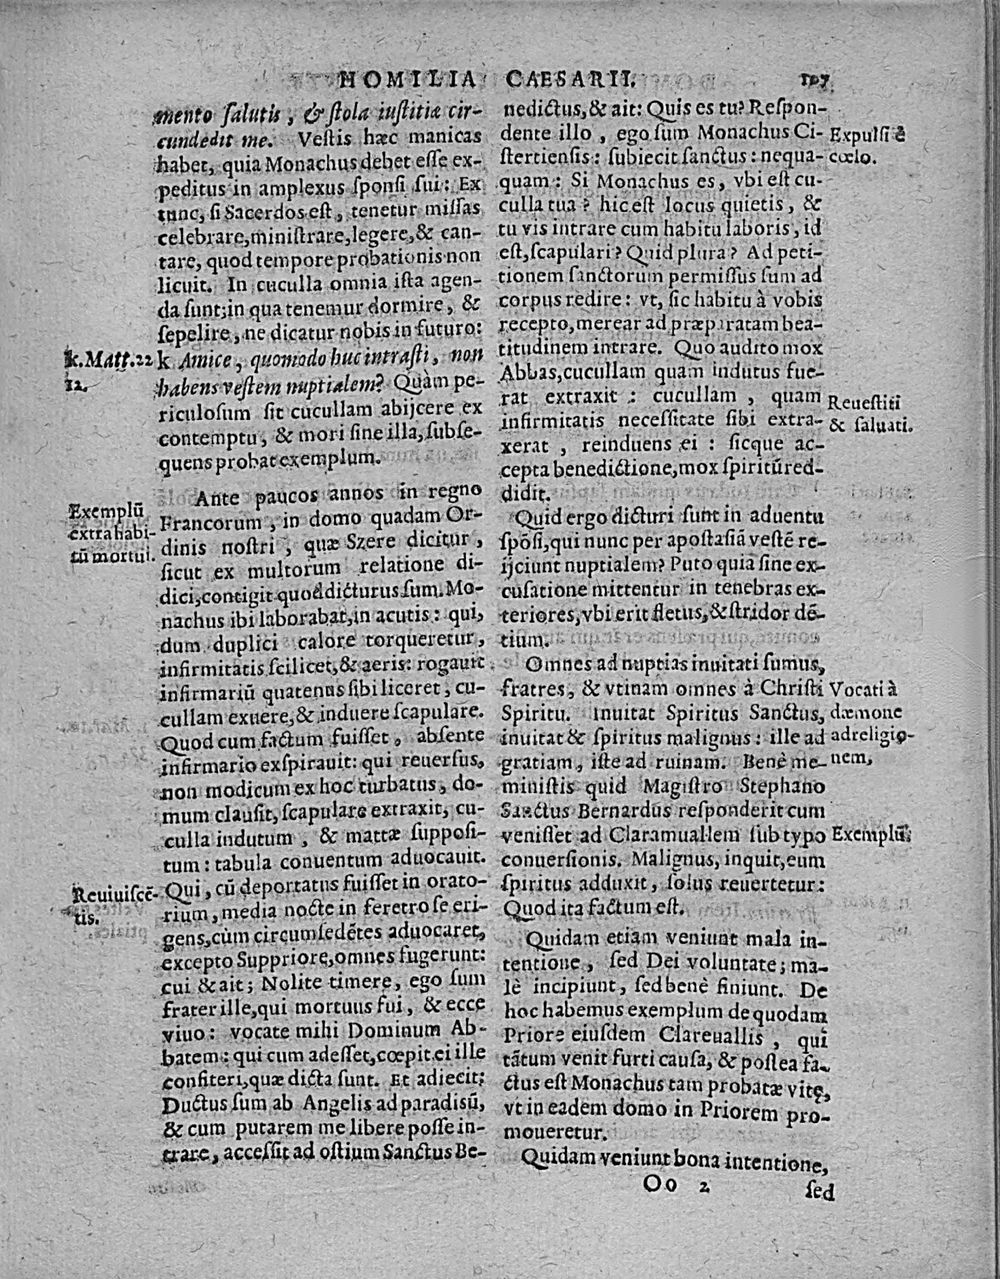 HOMILIA CAESARII. 107
mento salutis, & stola iustitiæ cir-
cundedit me. Vestis hæc manicas
habet, quia Monachus debet esse ex-
peditus in amplexus sponsi sui: Ex
tunc, si Sacerdos est, tenetur missas
celebrare, ministrare, legere, & can-
tare, quod tempore probationis non
licuit. In cuculla omnia ista agen-
da sunt; in qua tenemur dormire, &
sepelire, ne dicatur nobis in futuro:
k.Matt.22
12.
k Amice, quomodo huc intrasti, non
habens vestem nuptialem? Quàm pe-
riculosum sit cucullam abijcere ex
contemptu, & mori sine illa, subse-
quens probat exemplum.
Exemplũ
extra habi-
tũ mortui.
Ante paucos annos in regno
Francorum, in domo quadam Or-
dinis nostri, quæ Szere dicitur,
sicut ex multorum relatione di-
dici, contigit quod dicturus sum. Mo-
nachus ibi laborabat, in acutis: qui,
dum duplici calore torqueretur,
infirmitatis scilicet, & aeris: rogauit
infirmariũ quatenus sibi liceret, cu-
cullam exuere, & induere scapulare.
Quod cum factum fuisset, absente
infirmario exspirauit: qui reuersus,
non modicum ex hoc turbatus, do-
mum clausit, scapulare extraxit, cu-
culla indutum, & mattæ supposi-
tum: tabula conuentum aduocauit.
Reuiuiscē-
tis.
Qui, cũ deportatus fuisset in orato-
rium, media nocte in feretro se eri-
gens, cùm circumsedētes aduocaret,
excepto Suppriore, omnes fugerunt:
cui & ait; Nolite timere, ego sum
frater ille, qui mortuus fui, & ecce
viuo: vocate mihi Dominum Ab-
batem: qui cum adesset, cœpit ei ille
confiteri, quæ dicta sunt. Et adiecit;
Ductus sum ab Angelis ad paradisũ,
& cum putarem me libere posse in-
trare, accessit ad ostium Sanctus Be-
nedictus, & ait: Quis es tu? Respon-
dente illo, ego sum Monachus Ci-
stertiensis: subiecit sanctus: nequa-
quam: Si Monachus es, vbi est cu-
culla tua? hic est locus quietis, &
tu vis intrare cum habitu laboris, id
est, scapulari? Quid plura? Ad peti-
tionem sanctorum permissus sum ad
corpus redire: vt, sic habitu à vobis
recepto, merear ad præparatam bea-
titudinem intrare. Quo audito mox
Abbas, cucullam quam indutus fue-
rat extraxit: cucullam, quam
infirmitatis necessitate sibi extra-
xerat, reinduens ei: sicque ac-
cepta benedictione, mox spiritũ red-
didit.
Expulsi ē
cœlo.
Reuestiti
& saluati.
Quid ergo dicturi sunt in aduentu
spōsi, qui nunc per apostasiā vestē re-
ijciunt nuptialem? Puto quia sine ex-
cusatione mittentur in tenebras ex-
teriores, vbi erit fletus, & stridor dē-
tium.
Omnes ad nuptias inuitati sumus,
fratres, & vtinam omnes à Christi
Spiritu. Inuitat Spiritus Sanctus,
inuitat & spiritus malignus: ille ad
gratiam, iste ad ruinam. Benè me-
ministis quid Magistro Stephano
Sanctus Bernardus responderit cum
venisset ad Claramuallem sub typo
conuersionis. Malignus, inquit, eum
spiritus adduxit, solus reuertetur:
Quod ita factum est.
Vocati à
dæmone
ad religio-
nem,
Exemplũ;
Quidam etiam veniunt mala in-
tentione, sed Dei voluntate; ma-
lè incipiunt, sed benè finiunt. De
hoc habemus exemplum de quodam
Priore eiusdem Clareuallis, qui
tātum venit furti causa, & postea fa-
ctus est Monachus tam probatæ vitę,
vt in eadem domo in Priorem pro-
moueretur.
Quidam veniunt bona intentione,
Oo 2
sed